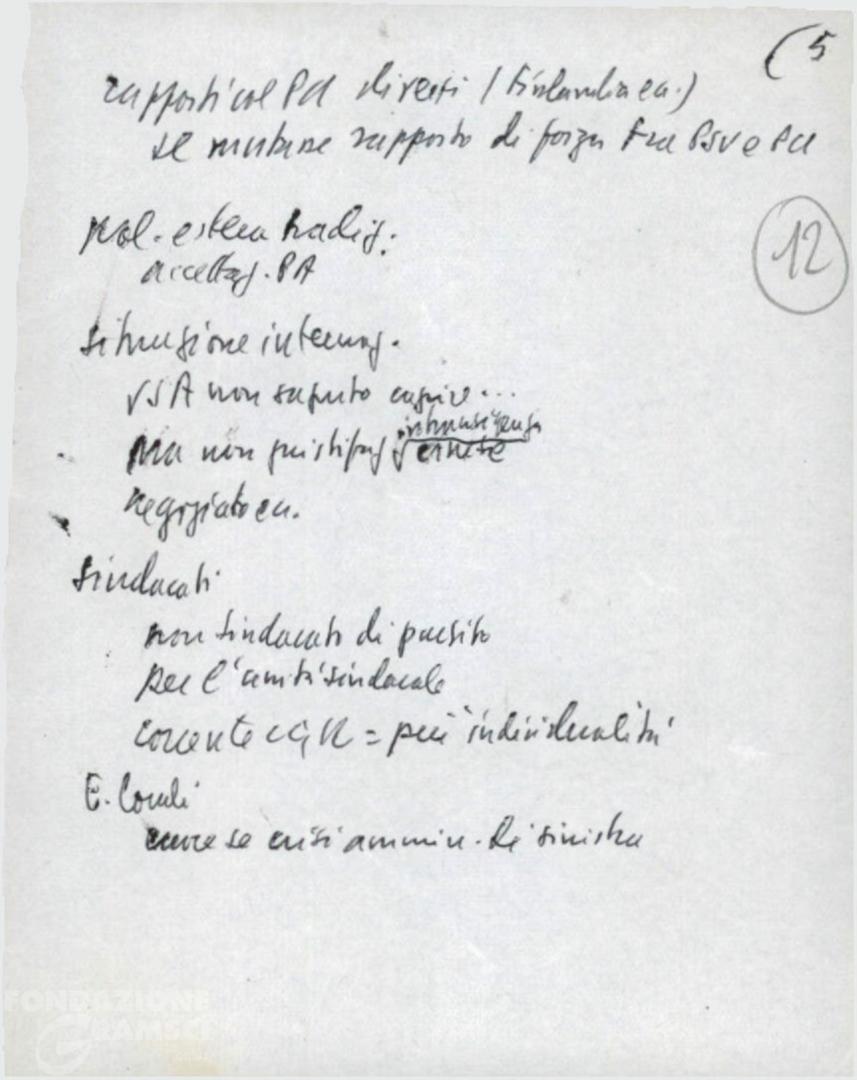 (5
rapporti col PCI diversi (Finlandia ecc.)
se mutasse rapporto di forza fra PSU e PCI
12
pol. estera tradiz.
accettaz. PA
situazione internaz.
USA non saputo capire...
intransigenza
Ma non giustificaz
negoziato ecc.
Sindacati
non sindacato di partito
per l'unità sindacale
corrente CGIL = più individualità
E. Locali
sinistra
FONDAZIONE
GRAMSCI